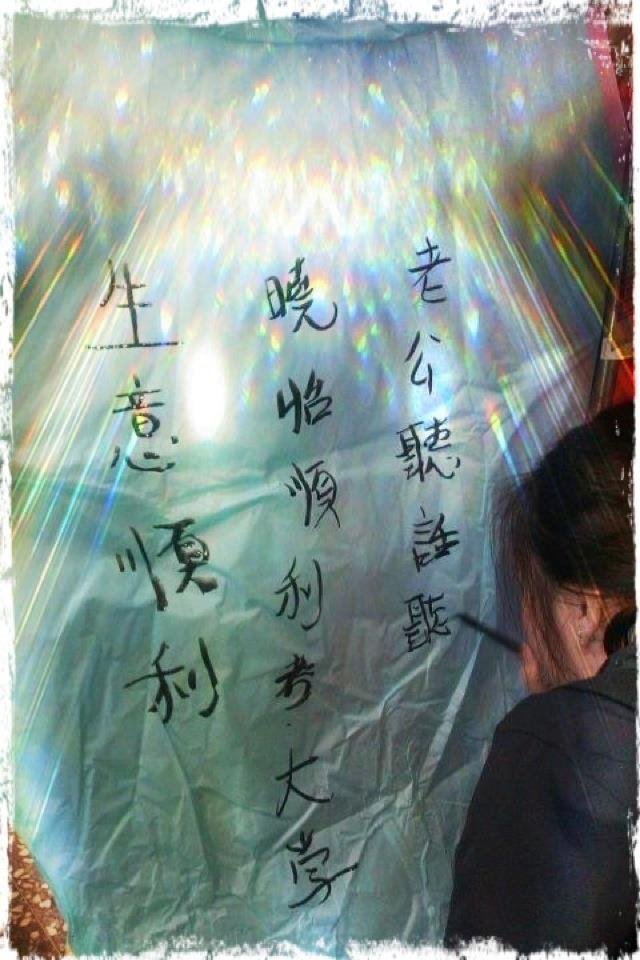 老公聽話聽
曉怡順利考大学
生意順利